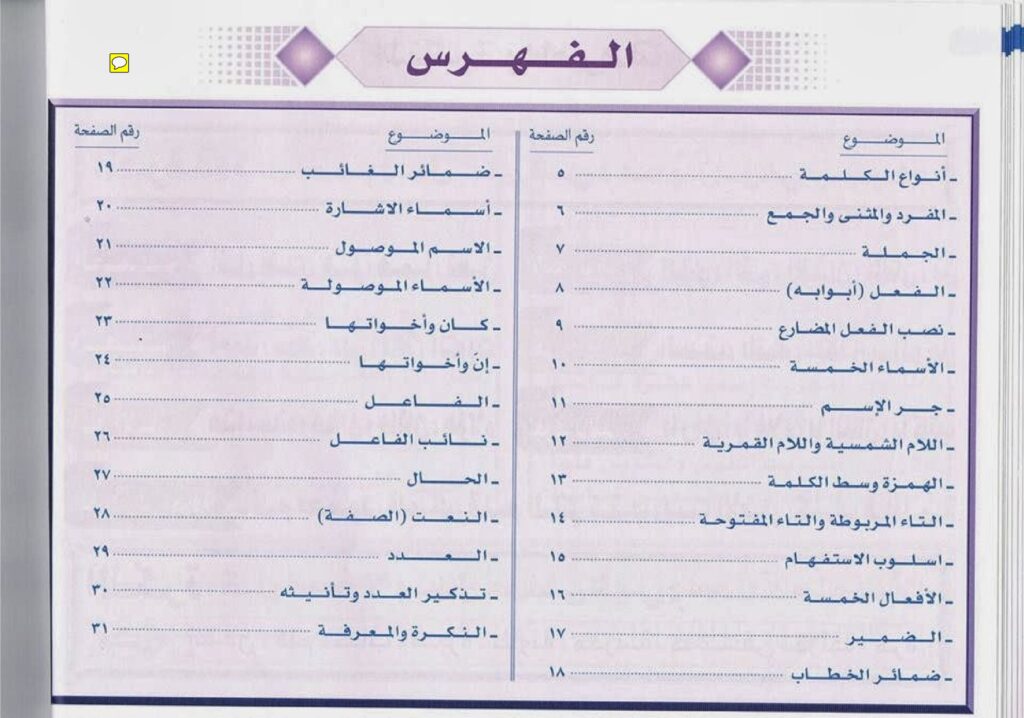 الفهرس
الموضوع رقم الصفحة
- أنواع الكلمة ٥
- المفرد والمثنى والجمع ٦
- الجملة ٧
- الفعل (أبوابه) ٨
- نصب الفعل المضارع ٩
- الأسماء الخمسة ١٠
- جر الإسم ١١
- اللام الشمسية واللام القمرية ١٢
- الهمزة وسط الكلمة ١٣
- التاء المربوطة والتاء المفتوحة ١٤
- اسلوب الاستفهام ١٥
- الأفعال الخمسة ١٦
- الضمير ١٧
- ضمائر الخطاب ١٨
الموضوع رقم الصفحة
- ضمائر الغائب ١٩
- أسماء الاشارة ٢٠
- الاسم الموصول ٢١
- الأسماء الموصولة ٢٢
- كان وأخواتها ٢٣
- إنّ وأخواتها ٢٤
- الفاعل ٢٥
- نائب الفاعل ٢٦
- الحال ٢٧
- النعت (الصفة) ٢٨
- العدد ٢٩
- تذكير العدد وتأنيثه ٣٠
- النكرة والمعرفة ٣١